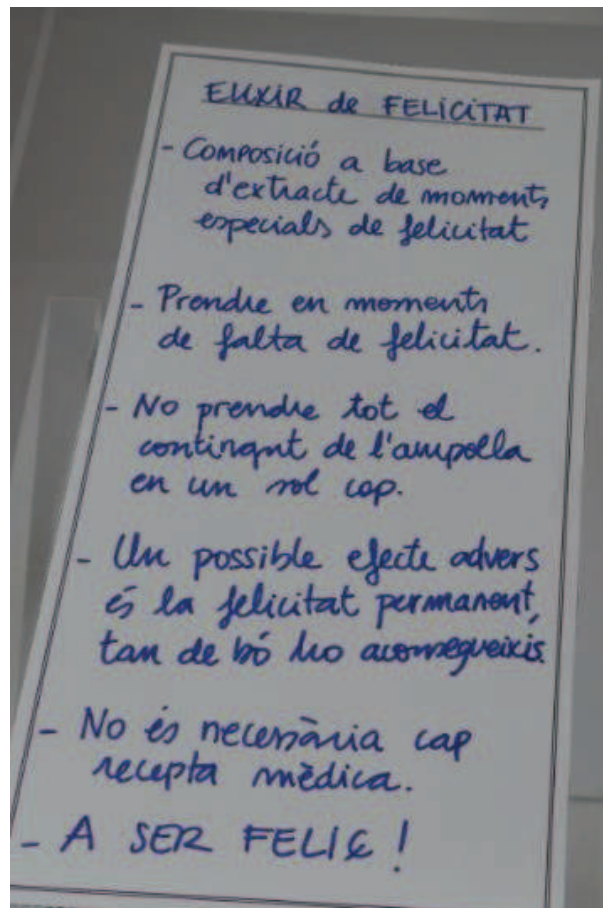 ELIXIR de FELICITAT
- Composició a base
d'extracte de moments
especials de felicitat
- Prendre en moments
de falta de felicitat.
- No prendre tot el
contingut de l'ampolla
en un sol cop.
- Un possible efecte advers
és la felicitat permanent,
tan de bó ho aconsegueixis.
- No és necessària cap
recepta mèdica.
- A SER FELIÇ!